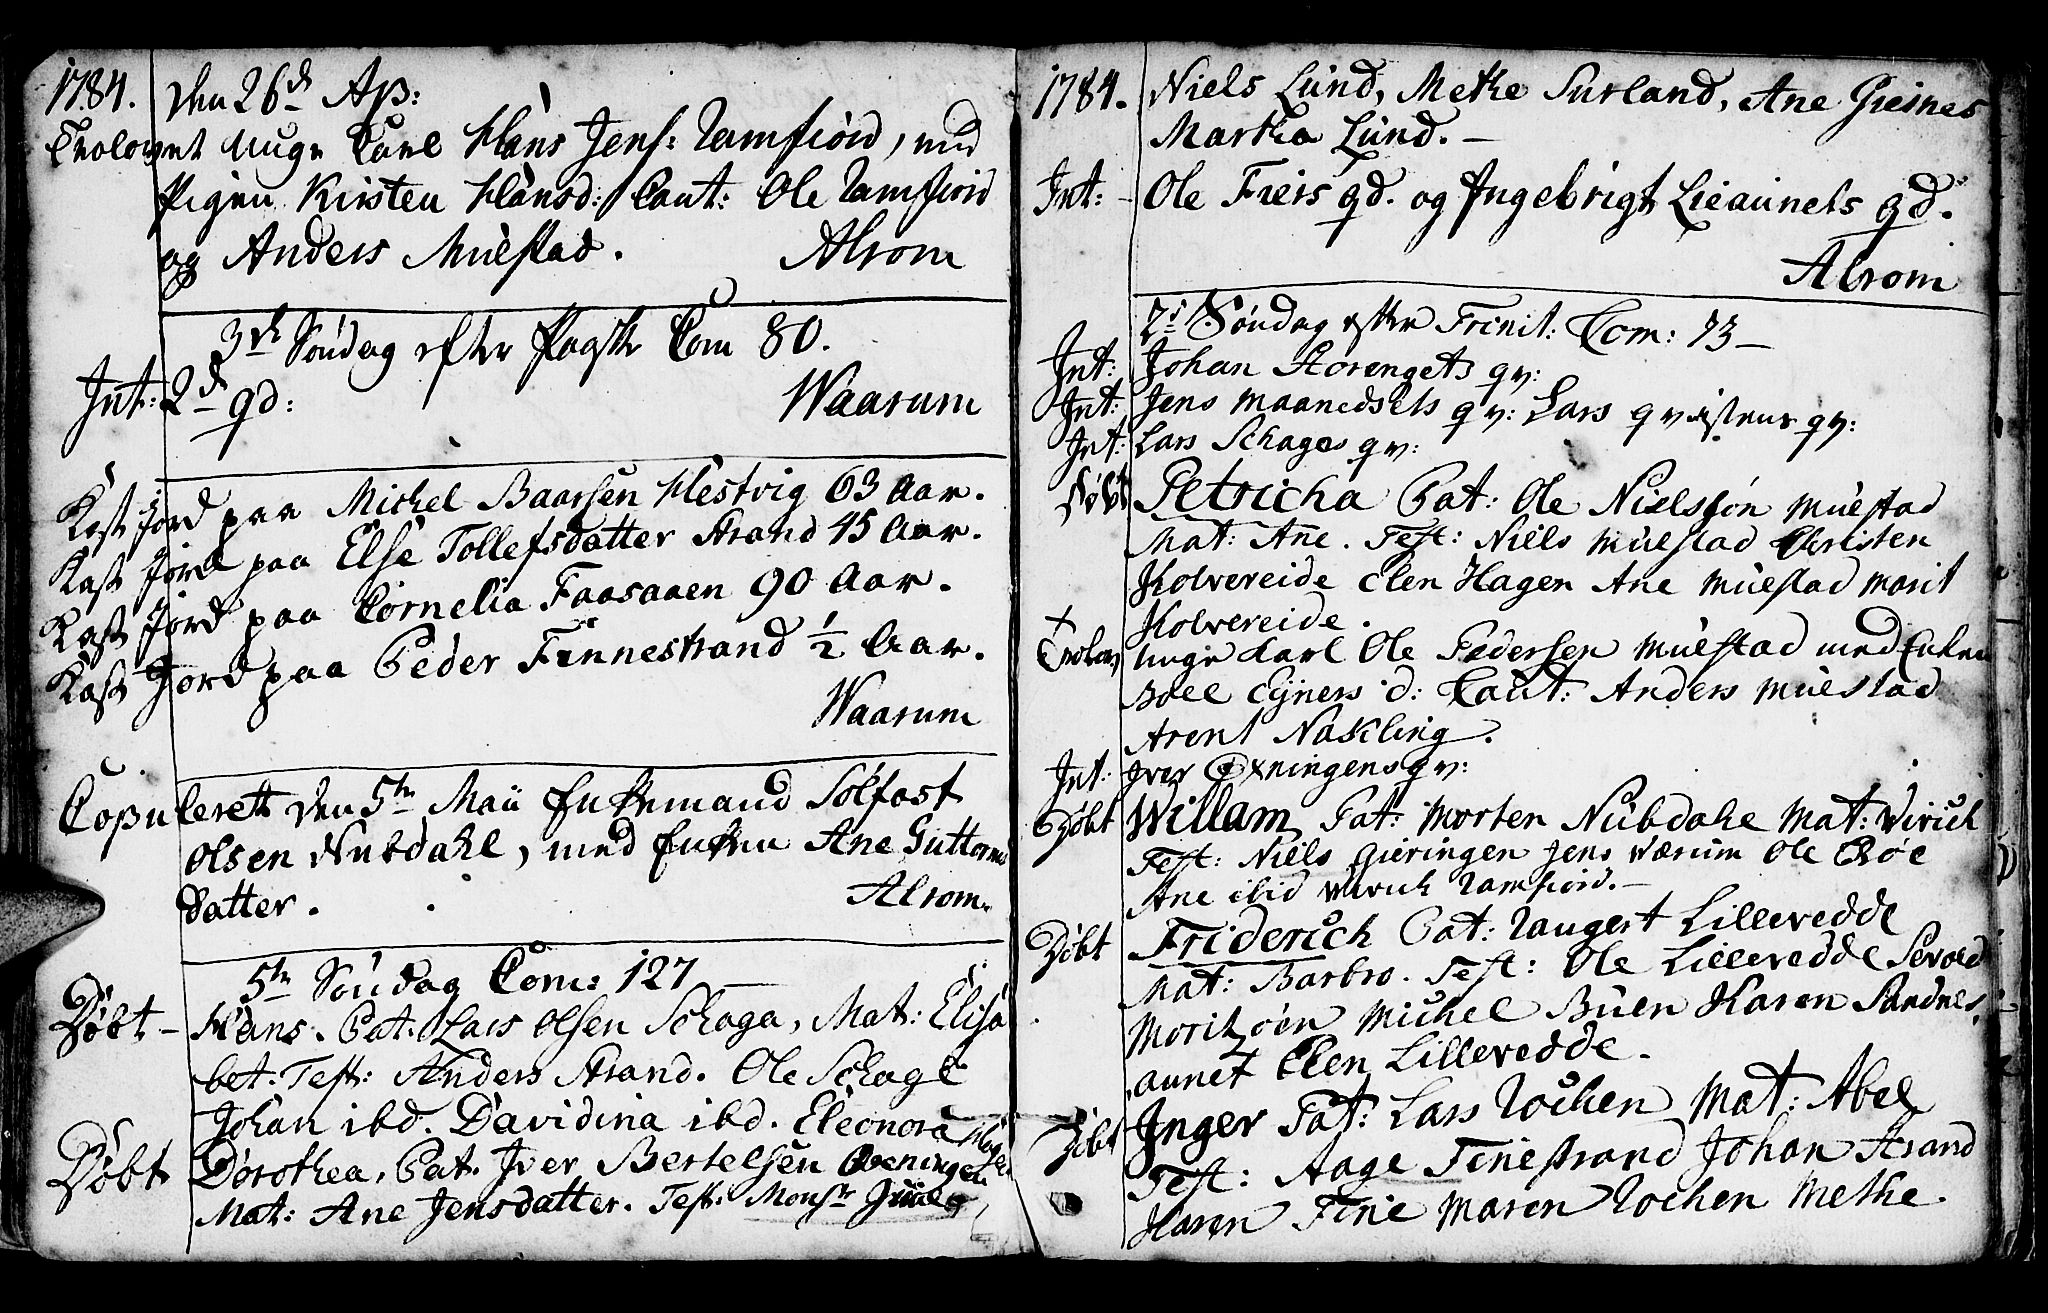 1784. den 26d Ap:
Trolovet unge Karl Hans Jens: Ramfiord, med
Pigen Kirsten Hansd: Caut: Ole Ramfiord
og Anders Muestad. Alrom
3de Søndag efter Paaske Com 80.
Int: 2d qd: Waarum
Kast Jord paa Michel Baarsen Hestvig 63 Aar.
Kast Jord paa Else Tollefsdatter Strand 45 Aar.
Kast Jord paa Cornelia Faasaaen 90 Aar.
Kast Jord paa Peder Finnestrand 1/2 Aar.
Waarum
Copuleret den 5te Maii Enkemand Solfast
Olsen Nubdahl, med Enken Ane Guttorms
datter. Alrom.
5te Søndag Com: 127
Døbt – Hans. Pat: Lars Olsen Schaga, Mat: Elisa
bet. Test: Anders Strand. Ole Schage
Johan ibd. Davidina ibd. Eleonora
Døbt Dorothea, Pat. Iver Bertelsen Øxeningen
Mat: Ane Jensdatter. Test: Monsr
1784. Niels Lund, Methe Surland, Ane Gieines
Martha Lund. –
Int: – Ole Fiers qd. og Ingebrigt Lieaunets qd.
Alrom
2d Søndag efter Trinit: Com: 73 –
Int: Johan Storengets qv:
Int: Jens Maanedsels qv: Lars qvistens qv:
Int: Lars Schages qv:
Døbt Petricha Pat: Ole Nielssøn Muestad
Mat: Ane. Test: Niels Muestad Christen
Kolvereide Elen Hagen Ane Muestad Marit
Kolvereide.
+
Trolov unge Karl Ole Pedersen Muestad med Enken
Boel Ejners d: Caut: Anders Muestad
Arent Nakling.
Int: Iver Øxningens qv:
Døbt Willam Pat: Morten Nubdahl Mat: Virich
Test: Niels Gieringen Jens Værum Ole Røe
Ane ibid Virich Ramfiord. –
Døbt Friderich Pat: Laugert Lilleredde
Mat: Barbro. Test: Ole Lilleredde Sevold
Moritzøen Michel Buen Karen Sandnes
aunet Elen Lilleredde.
Døbt Inger Pat: Lars Rochen Mat: Abel
Test: Aage Finestrand Johan Strand
Karen Fine Maren Rochen Methe